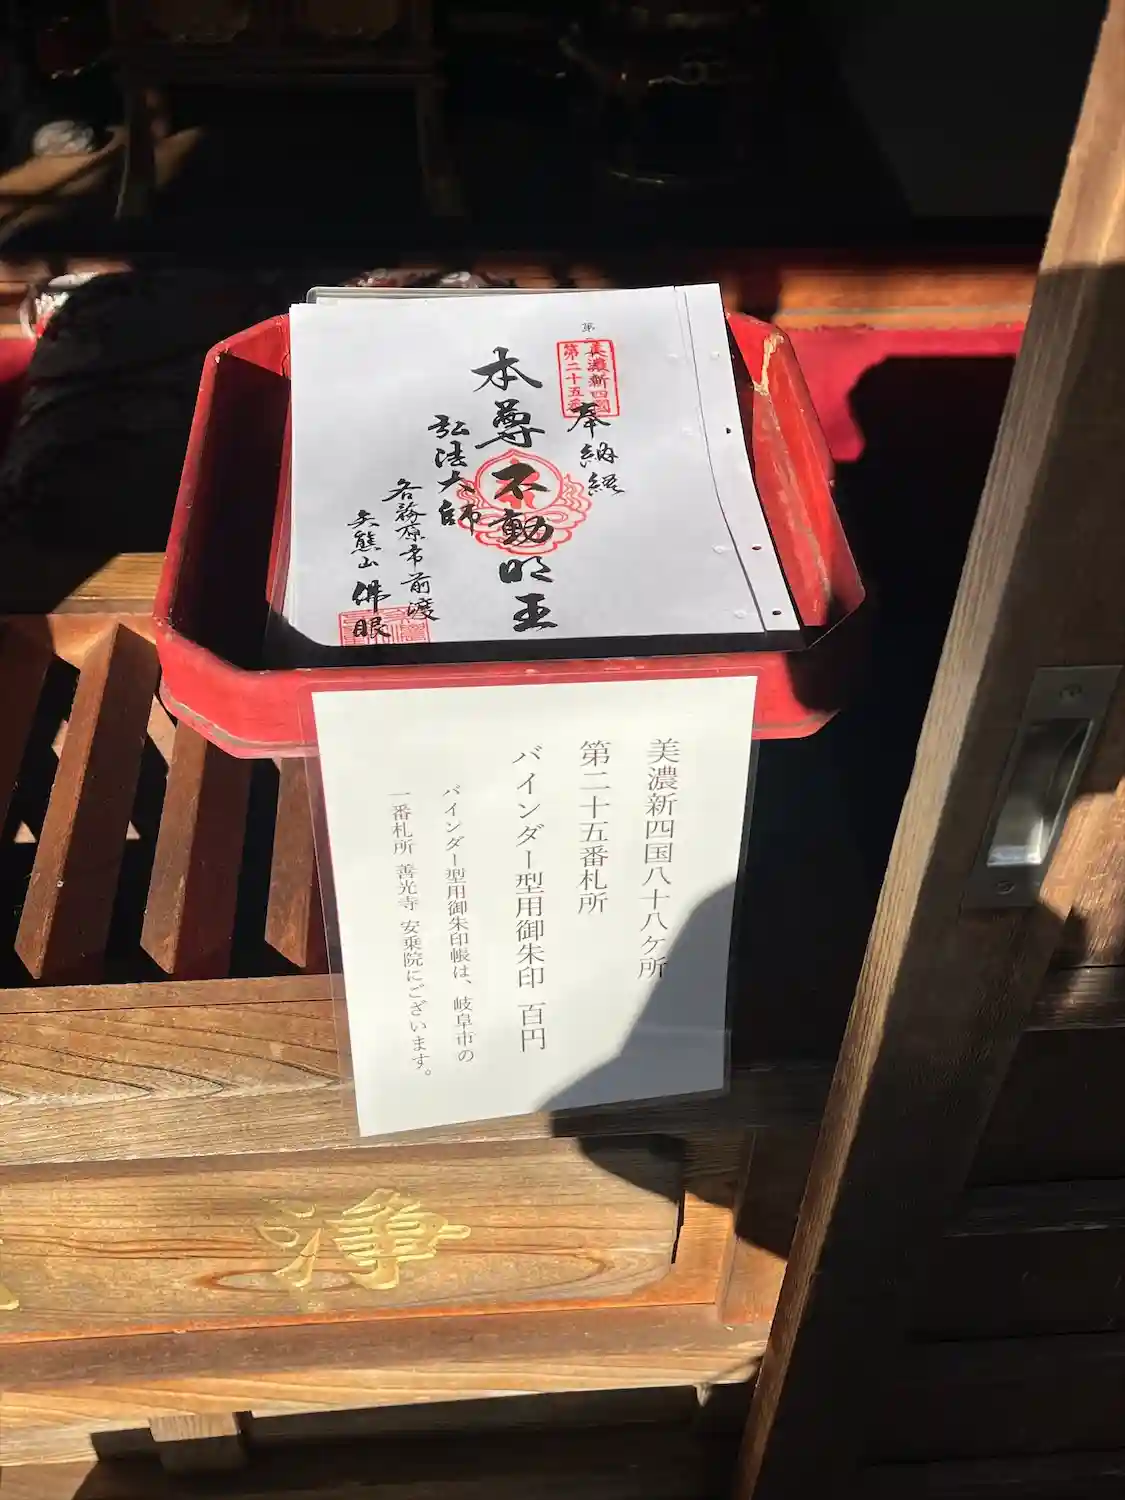 第
美濃新四国
第二十五番
奉納経
本尊不動明王
弘法大師
各務原市前渡
矢熊山 佛眼
美濃新四国八十八ヶ所
第二十五番札所
バインダー型用御朱印 百円
バインダー型用御朱印帳は、岐阜市の
一番札所 善光寺 安乗院にございます。
浄